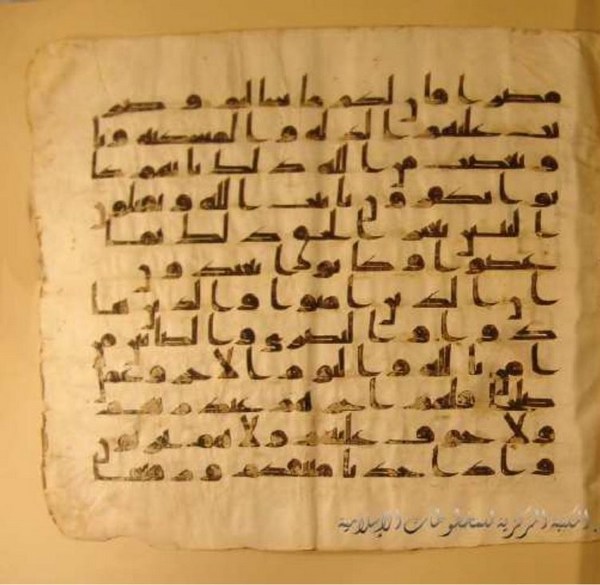 مصرا فان لكم ما سالتم و ضر
بت عليهم الذله و المسكنه وبا
و بغضب من الله ذلك بانهم كا
نوا يكفرون بايت الله و يقتلون
النبين بغير الحق ذلك بما
عصوا و كانوا يعتدون
ان الذين امنوا و الذين ها
دوا و النصرى و الصابين من
امن بالله و اليوم الاخر وعمل
صلحا فلهم اجرهم عند ربهم
ولا خوف عليهم ولا هم يحزنون
و اذ اخذنا ميثقكم و رفعنا
المكتبة المركزية للمخطوطات الإسلامية